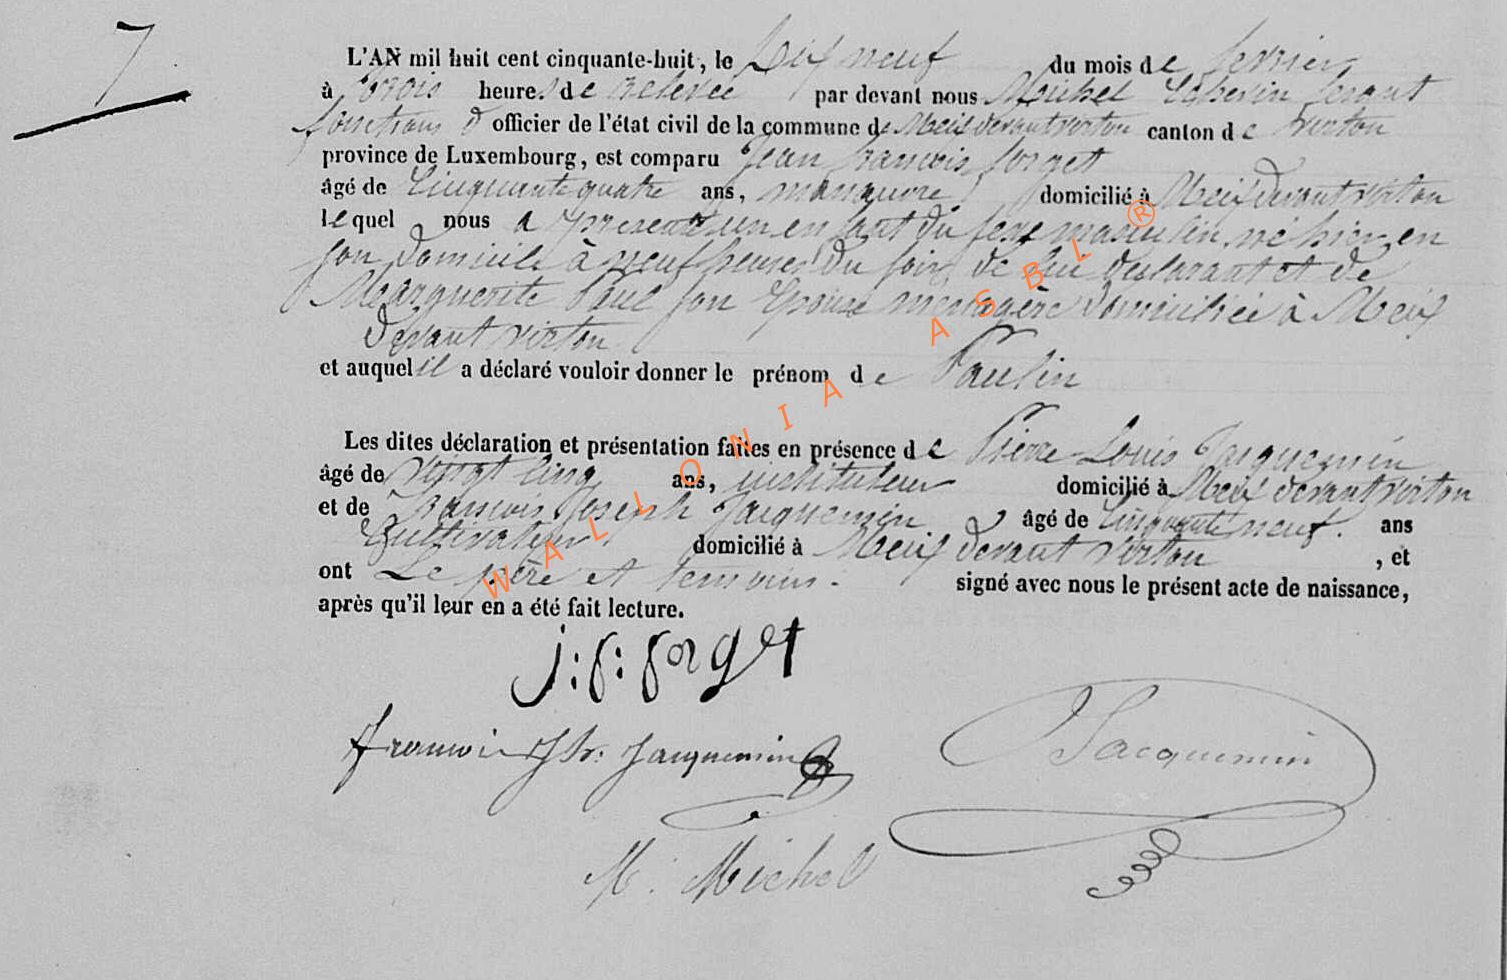 7
L'AN mil huit cent cinquante-huit, le Dix neuf du mois de fevrier
à trois heures de relevée par devant nous Michel faisant
fonctions d' officier de l'état civil de la commune de Meix devant virton canton de virton
province de Luxembourg, est comparu Jean francois forget
âgé de Cinquante quatre ans, manœuvre domicilié à Meix devant virton
lequel nous a présenté un enfant du sexe masculin, né hier en
son domicile à neuf heures du soir de lui déclarant et de
Marguerite Paul son épouse ménagère domiciliée à Meix
devant virton
et auquel il a déclaré vouloir donner le prénom de Paulin
Les dites déclaration et présentation faites en présence de Pierre Louis Jacquemin
âgé de vingt cinq ans, instituteur domicilié à Meix devant virton
et de francois Joseph Jacquemin âgé de Cinquante neuf ans
Cultivateur domicilié à Meix devant virton , et
ont Le père et temoins signé avec nous le présent acte de naissance,
après qu'il leur en a été fait lecture.
j: f: forget
francois Jph: Jacquemin
Jacquemin
M. Michel
WALLONIA ASBL ®